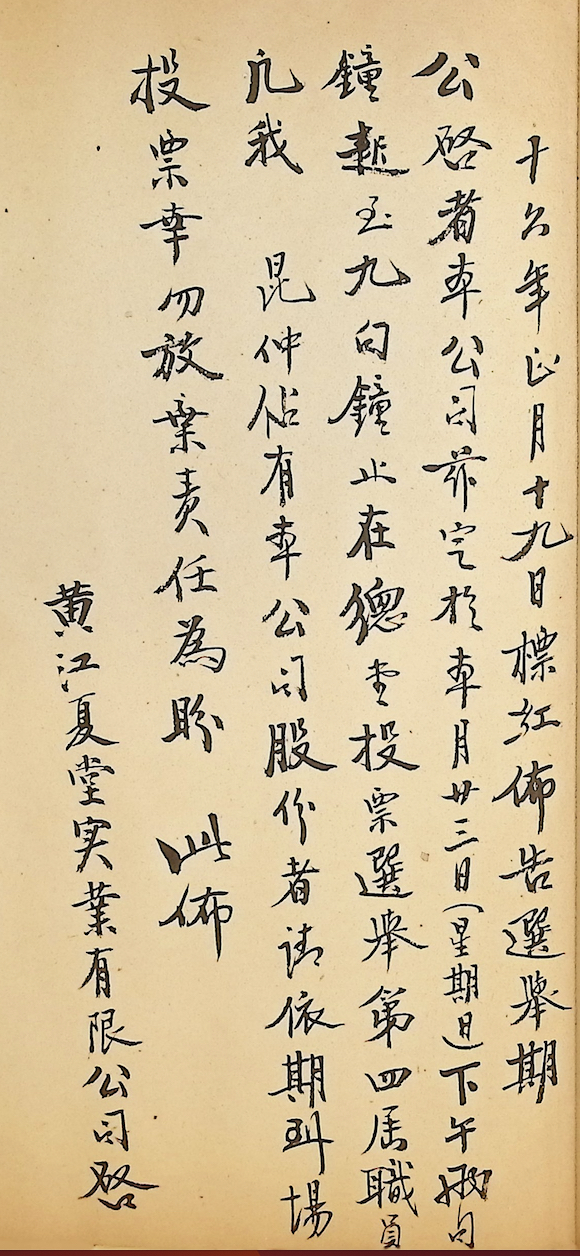 十六年正月十九日標紅佈告選舉期
公啓者本公司茲定於本月廿三日(星期日)下午句
鐘起至九句鐘止在總堂投票選舉第四届職員
凡我 昆仲佔有本公司股份者請依期到場
投票幸勿放棄責任為盼 此佈
黄江夏堂实業有限公司啓